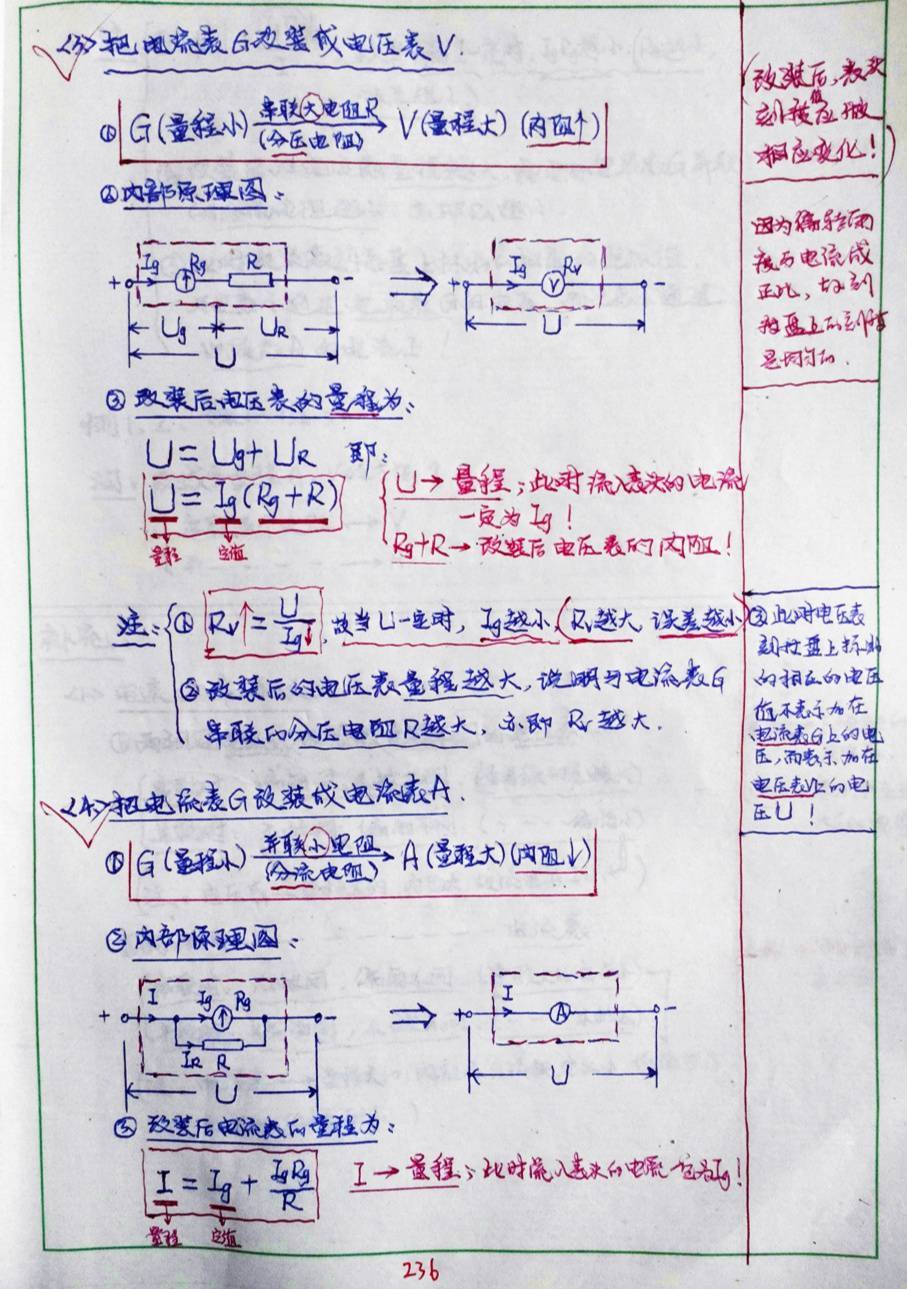 <3>把电流表G改装成电压表V.
① G(量程小) 串联大电阻R (分压电阻) → V(量程大) (内阻↑)
②内部原理图:
+ Ig Rg R - ⇒ + Ig Rv -
V
Ug UR U
U
③ 改装后电压表的量程为:
U = Ug + UR 即:
U = Ig(Rg + R)
量程 定值
U → 量程; 此时流入表头的电流
一定为Ig!
Rg+R → 改装后电压表的内阻!
注: ① Rv↑ = U/Ig↓, 故当U一定时, Ig越小, Rv越大, 误差越小
② 改装后的电压表量程越大, 说明与电流表G
串联的分压电阻R越大, 亦即Rv越大
<4>把电流表G改装成电流表A.
① G(量程小) 并联小电阻 (分流电阻) → A(量程大)(内阻↓)
② 内部原理图:
+ I Ig Rg - ⇒ + I A -
IR R
U U
③ 改装后电流表的量程为:
I = Ig + IgRg/R
量程 定值
I → 量程; 此时流入表头的电流一定为Ig!
改装后, 表头
刻度值应做
相应变化!
因为偏转角
度与电流成
正比, 故刻
度盘上的刻度
是均匀的.
③ 此时电压表
刻度盘上标出
的相应的电压
值不表示加在
电流表G上的电
压, 而表示加在
电压表V上的电
压U!
236